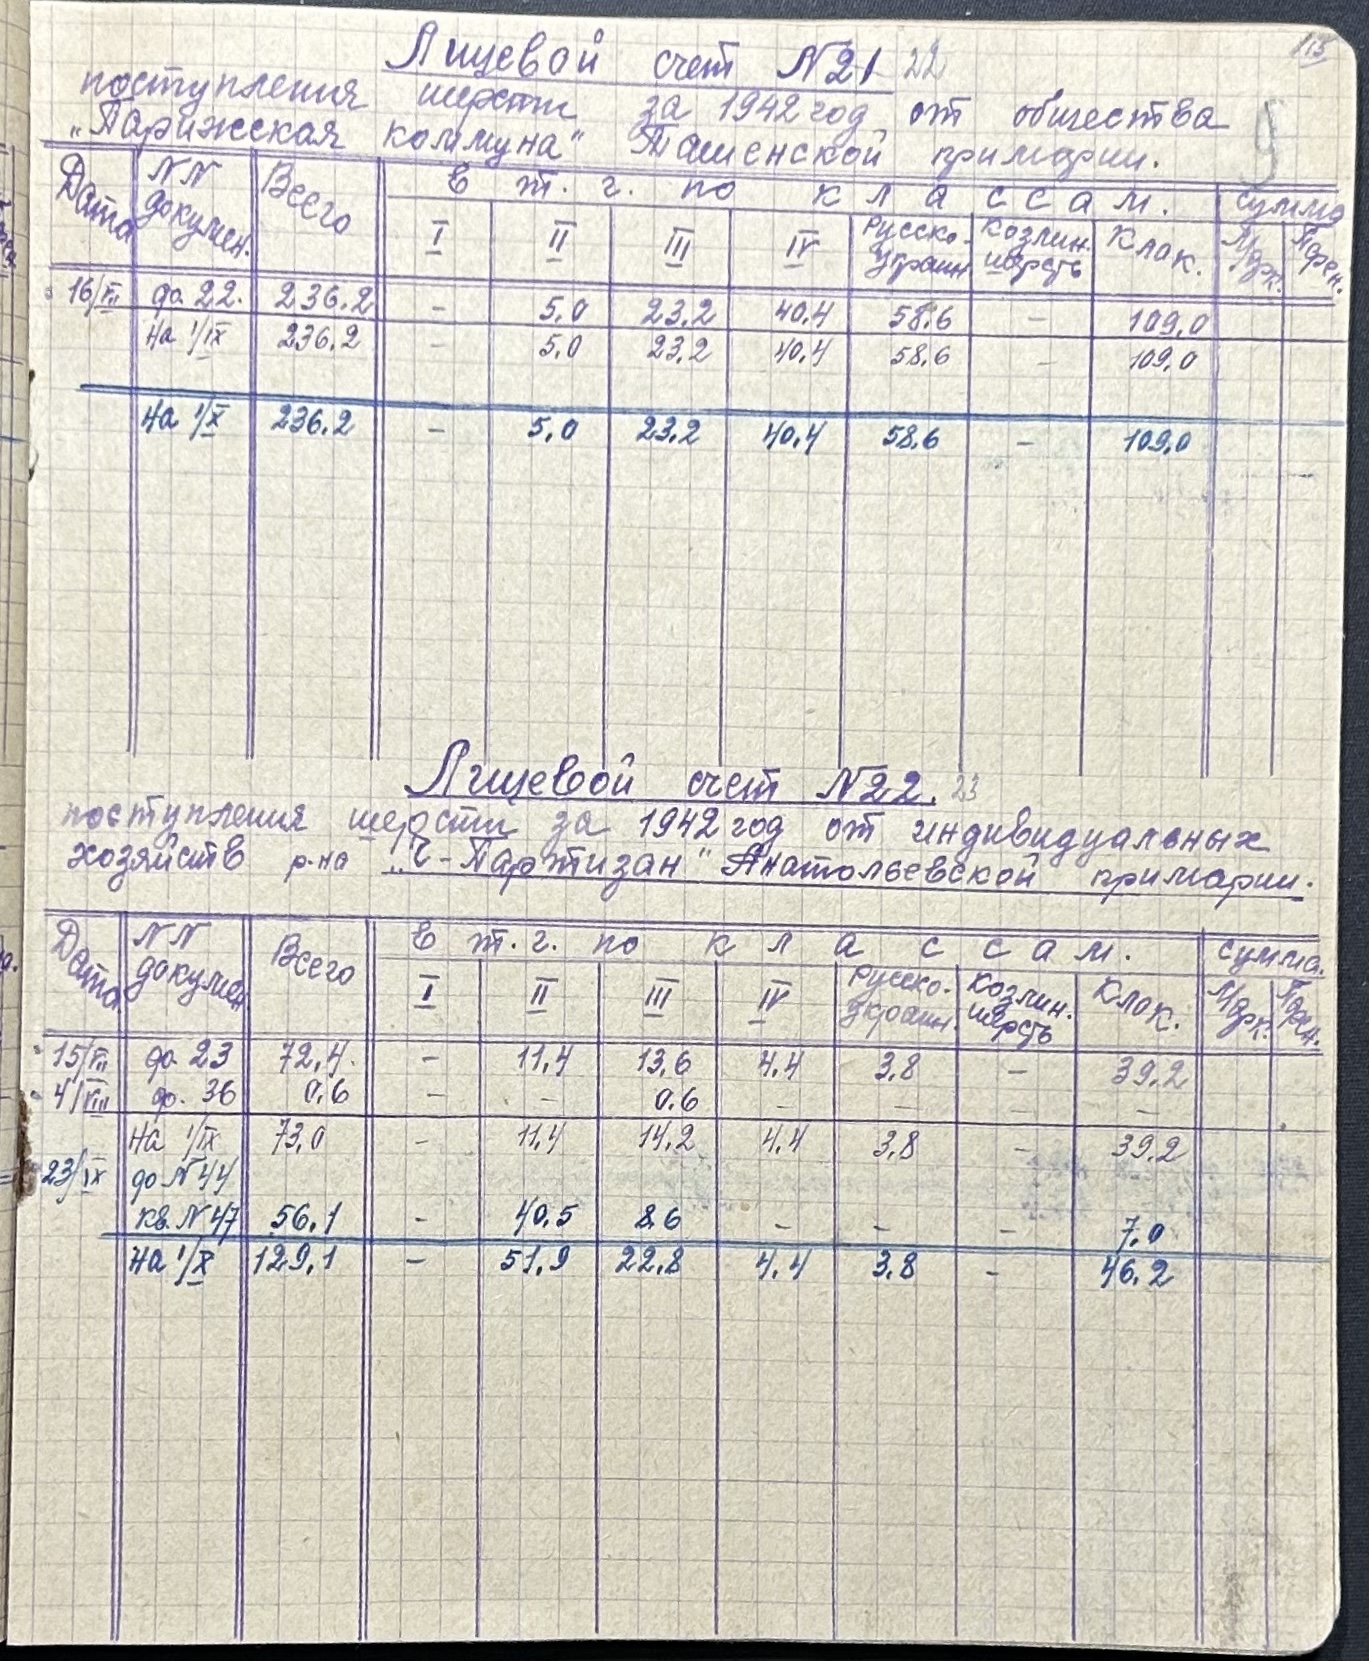 115
Лицевой счет №21 22
поступления шерсти за 1942 год от общества
„Парижская коммуна" Ташенской примарии.
Дата №№ докумен. Всего в т.ч. по классам. сумма
I II III IV Русско-украин. Козлин. шерсть Клок. Марк. Парен.
16/VII до 22. 236.2 - 5.0 23.2 40.4 58.6 - 109.0
на 1/IX 236.2 - 5.0 23.2 40.4 58.6 - 109.0
на 1/X 236.2 - 5.0 23.2 40.4 58.6 - 109.0
Лицевой счет №22. 23
поступления шерсти за 1942 год от индивидуальных
хозяйств р-на „Ч-Партизан" Анатольевской примарии.
Дата №№ докумен Всего в т.ч. по классам. сумма.
I II III IV Русско-украин. Козлин. шерсть Клок. Марк. Парен.
15/VII до 23 72,4. - 11,4 13,6 4.4 3,8 - 39.2
4/VIII до. 36 0.6 - - 0.6 - - - -
на 1/IX 73,0 - 11,4 14,2 4.4 3,8 - 39.2
23/IX до №44
кв. №47 56.1 - 40.5 8.6 - - - 7.0
на 1/X 129,1 - 51,9 22.8 4.4 3.8 - 46.2